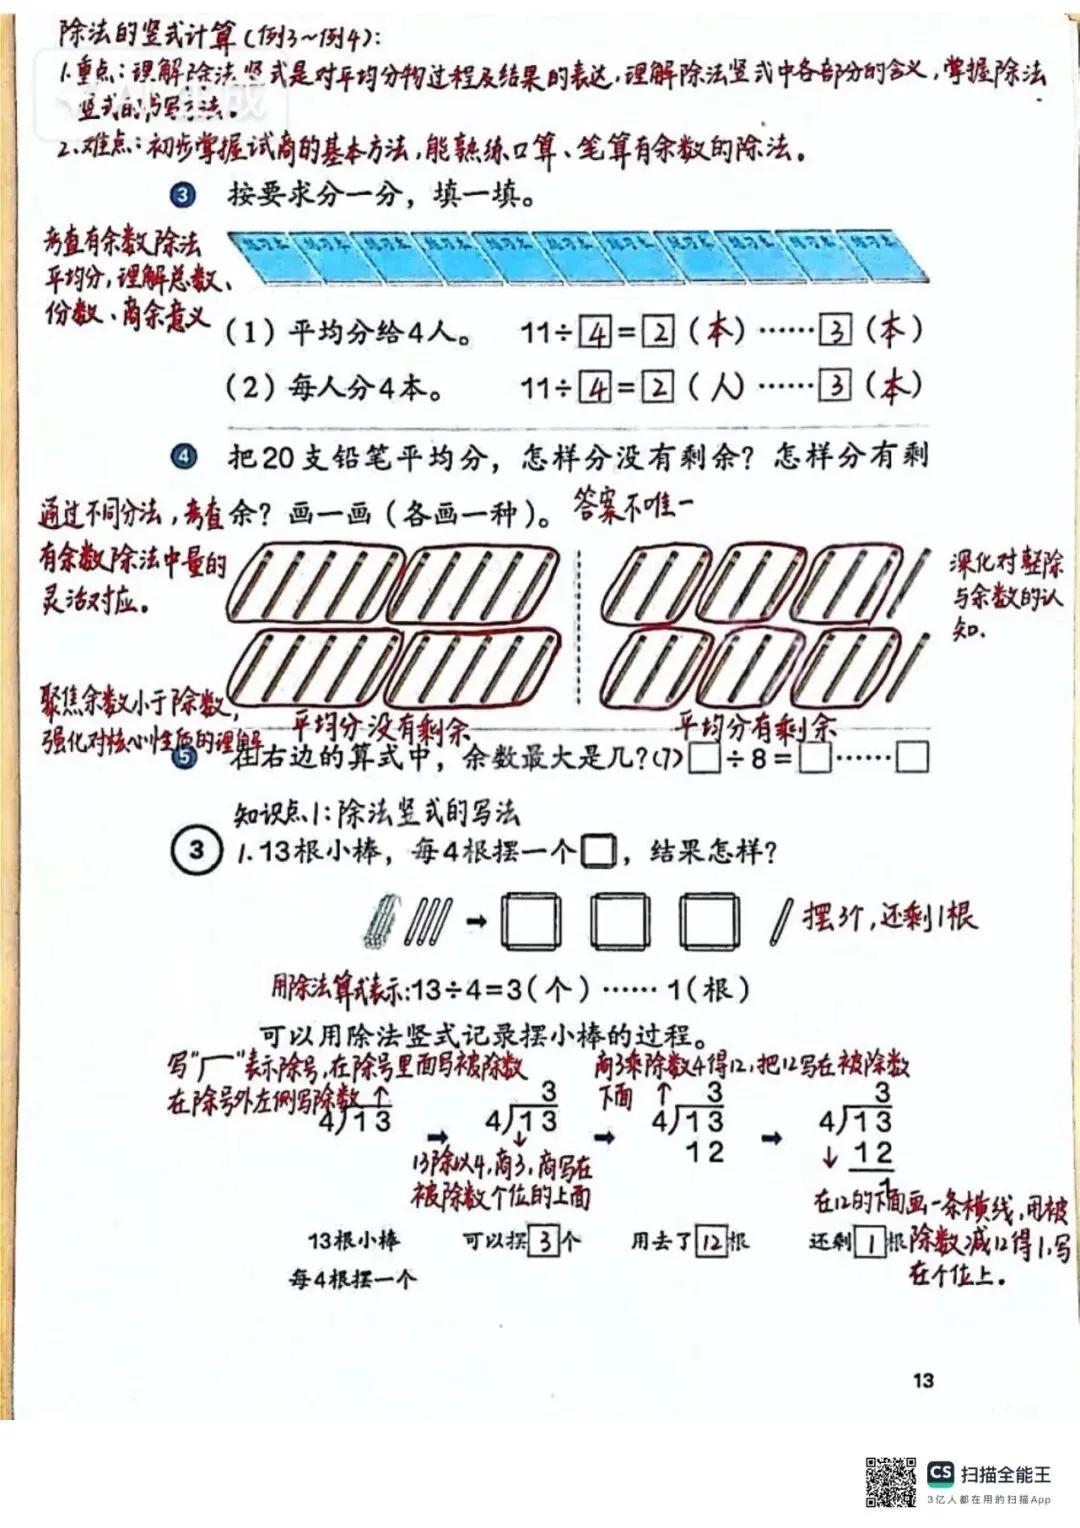 除法的竖式计算(例3~例4):
1.重点:理解除法竖式是对平均分物过程及结果的表达,理解除法竖式中各部分的含义,掌握除法
竖式的书写方法。
2.难点:初步掌握试商的基本方法,能熟练口算、笔算有余数的除法。
3 按要求分一分,填一填。
考查有余数除法
平均分,理解总数、
份数、商余意义
练习本 练习本 练习本 练习本 练习本 练习本 练习本 练习本 练习本 练习本 练习本
(1)平均分给4人。 11÷4=2(本)……3(本)
(2)每人分4本。 11÷4=2(人)……3(本)
4 把20支铅笔平均分,怎样分没有剩余?怎样分有剩
余?画一画(各画一种)。答案不唯一
通过不同分法,考查
有余数除法中量的
灵活对应。
深化对整除
与余数的认
知.
平均分没有剩余 平均分有剩余
聚焦余数小于除数,
强化对核心性质的理解
5 在右边的算式中,余数最大是几?(7) □÷8=□……□
知识点1:除法竖式的写法
3 1.13根小棒,每4根摆一个□,结果怎样?
摆3个,还剩1根
用除法算式表示:13÷4=3(个)……1(根)
可以用除法竖式记录摆小棒的过程。
写"厂"表示除号,在除号里面写被除数
在除号外左侧写除数↑
商3乘除数4得12,把12写在被除数
下面 ↑
3 3 3
4 13 4 13 4 13 4 13
↓ 12 ↓ 12
1
13除以4,商3,商写在
被除数个位的上面
在12的下面画一条横线,用被
除数减12得1,写
在个位上。
13根小棒 可以摆3个 用去了12根 还剩1根
每4根摆一个
13
CS 扫描全能王
3亿人都在用的扫描App